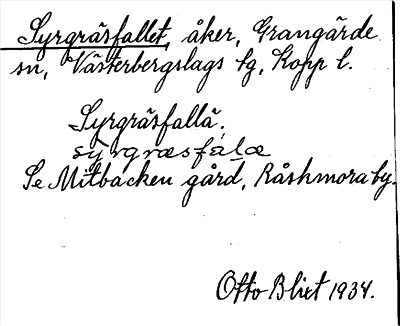 Syrgräsfallet, åker, Grangärde
sn, Västerbergslags tg, Kopp l.
Syrgräsfallä,
sy̱rgræsfa̱læ
Se Mitbacken gård, Råshmora by.
Otto Blixt 1934.